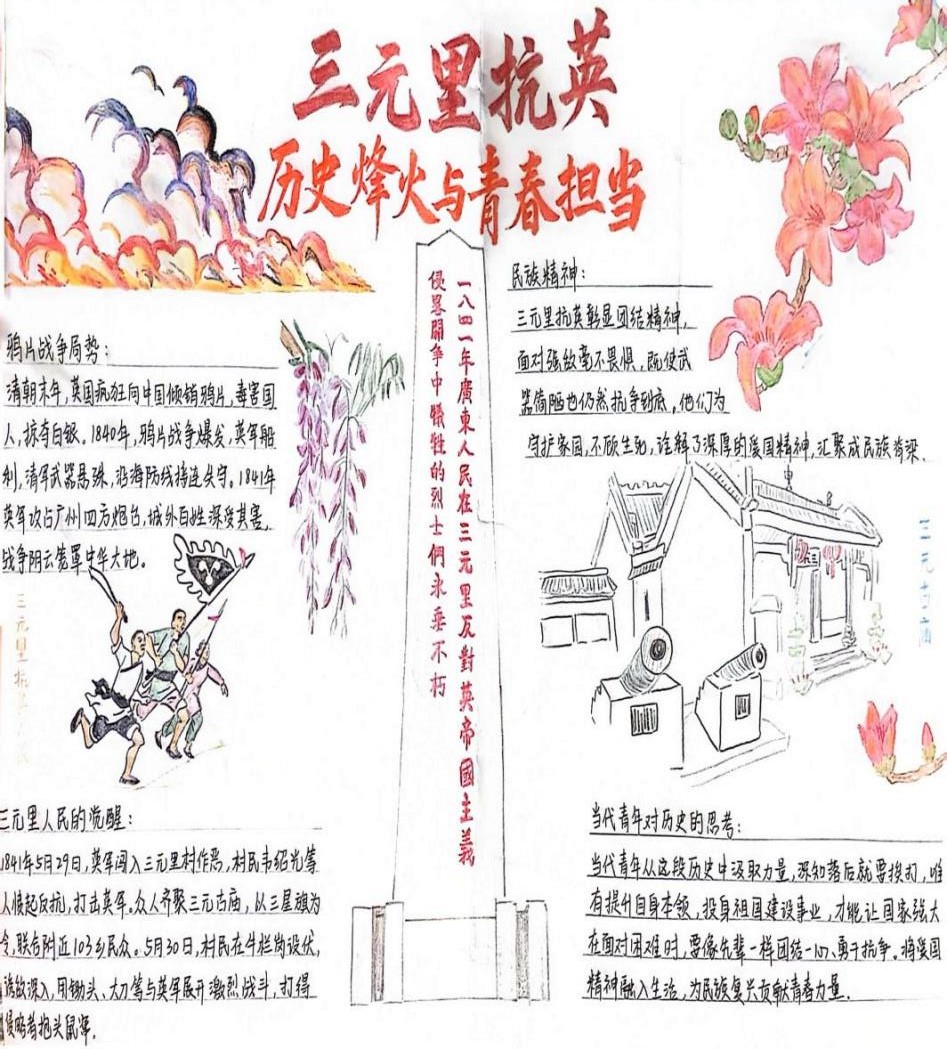 三元里抗英
历史烽火与青春担当
鸦片战争局势：
清朝末年，英国疯狂向中国倾销鸦片，毒害国
人，掠夺白银。1840年，鸦片战争爆发，英军船
利，清军武器悬殊，沿海防线接连失守。1841年
英军攻占广州四方炮台，城外百姓深受其害，
战争阴云笼罩中华大地。
三元里抗英
三元里人民的觉醒：
1841年5月29日，英军闯入三元里村作恶，村民韦绍光等
人愤起反抗，打击英军。众人齐聚三元古庙，以三星旗为
令，联合附近103乡民众。5月30日，村民在牛栏岗设伏，
诱敌深入，用锄头、大刀等与英军展开激烈战斗，打得
侵略者抱头鼠窜.
一八四一年廣東人民在三元里反對英帝國主義
侵畧鬭争中犧牲的烈士們永垂不朽
民族精神：
三元里抗英彰显团结精神，
面对强敌毫不畏惧，既使武
器简陋也仍然抗争到底，他们为
守护家园，不顾生死，诠释了深厚的爱国精神，汇聚成民族脊梁.
三元古庙
当代青年对历史的思考：
当代青年从这段历史中汲取力量，深知落后就要挨打，唯
有提升自身本领，投身祖国建设事业，才能让国家强大
在面对困难时，要像先辈一样团结一心、勇于抗争。将爱国
精神融入生活，为民族复兴贡献青春力量.